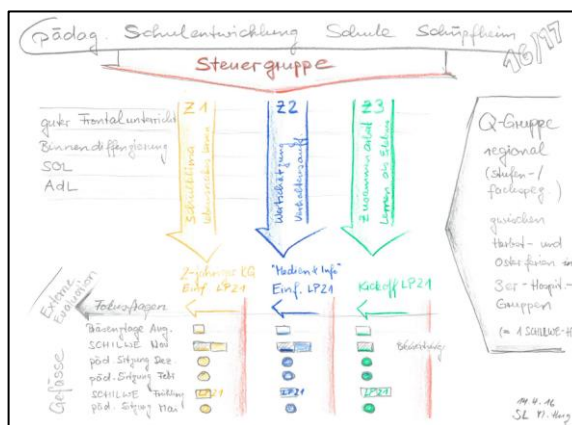 pädag. Schulentwicklung Schule Schüpfheim
16/17
Steuergruppe
guter Frontalunterricht
Binnendifferenzierung
SOL
AdL
Z1
Schulklima
Z2
Wertschätzung
Z3
Zusammenarbeit
Lernen als Eltern
Q-Gruppe
regional
(stufen-/
fachspez.)
zwischen
Herbst- und
Osterferien in
3er-Hospit.-
Gruppen
(= 1 SCHILWE-H
2-jähriger KG
Einf. LP21
"Medien & Info"
Einf. LP21
Kickoff LP21
Externe
Evaluation
Fokusfragen
Gefässe
Präsenztage Aug.
SCHILWE Nov
päd. Sitzung Dez.
päd. Sitzung Feb
SCHILWE Frühling
päd. Sitzung Mai
LP21
LP21
LP21
19.4.16
SL